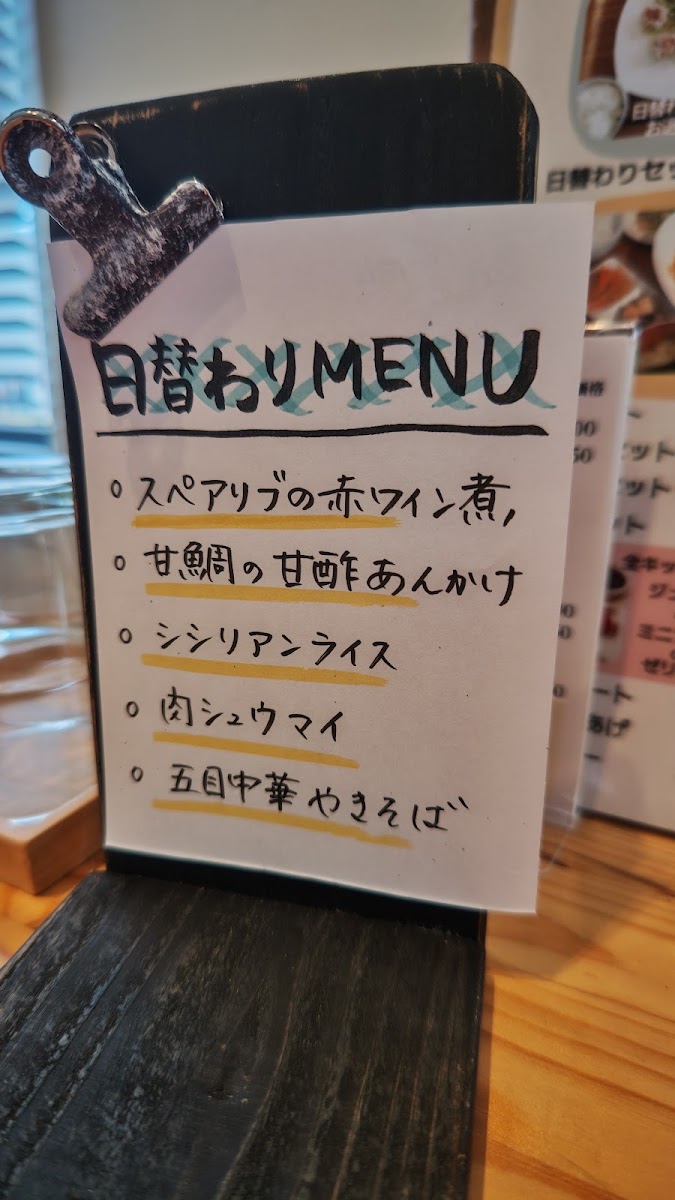 日替わりMENU
○ スペアリブの赤ワイン煮
○ 甘鯛の甘酢あんかけ
○ シシリアンライス
○ 肉シュウマイ
○ 五目中華やきそば
日替わりセッ